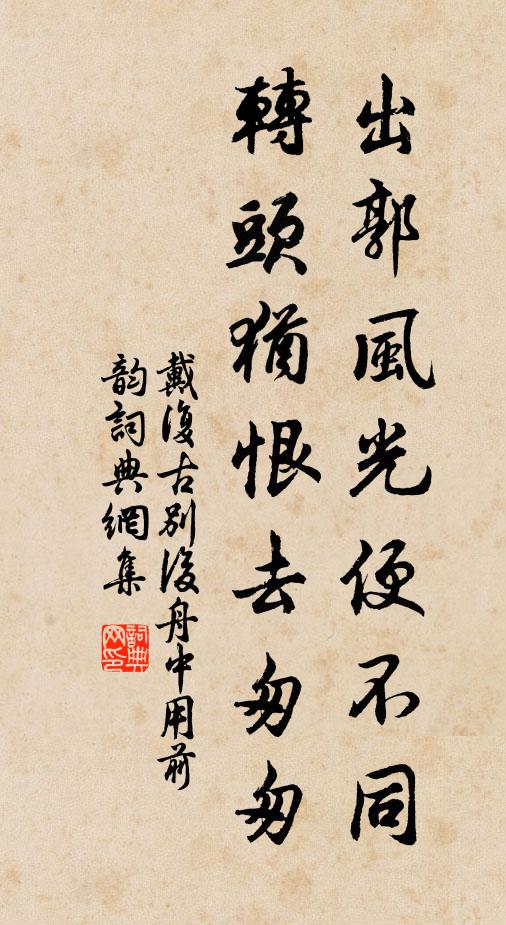 出郭風光便不同
轉頭猶恨去匆匆
戴復古別後舟中用前
韵詞典網集
詞典
网印